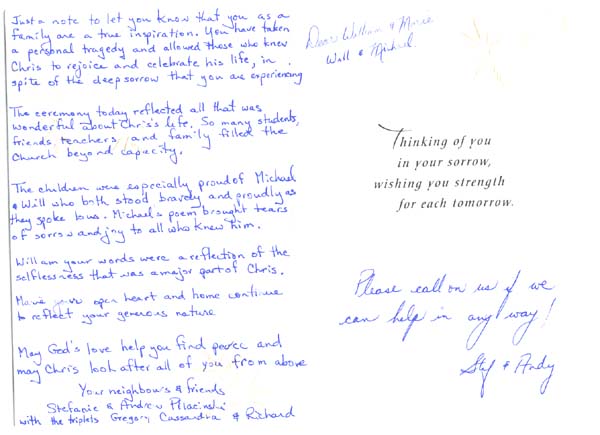 Just a note to let you know that you as a
family are a true inspiration. You have taken
a personal tragedy and allowed those who knew
Chris to rejoice and celebrate his life, in
spite of the deep sorrow that you are experiencing
The ceremony today reflected all that was
wonderful about Chris's life. So many students,
friends, teachers, and family filled the
Church beyond capacity.
The children were especially proud of Michael
& Will who both stood bravely and proudly as
they spoke. Michael's poem brought tears
of sorrow and joy to all who knew him.
William your words were a reflection of the
selflessness that was a major part of Chris.
your open heart and home continue
to reflect your generous nature
May God's love help you find peace and
may Chris look after all of you from above
Your neighbours & friends
Stefanie & Andrew
with the triplets Gregory, Cassandra & Richard
Dear William &
Will & Michael.
Thinking of you
in your sorrow,
wishing you strength
for each tomorrow.
Please call on us if we
can help in any way!
Stef & Andy